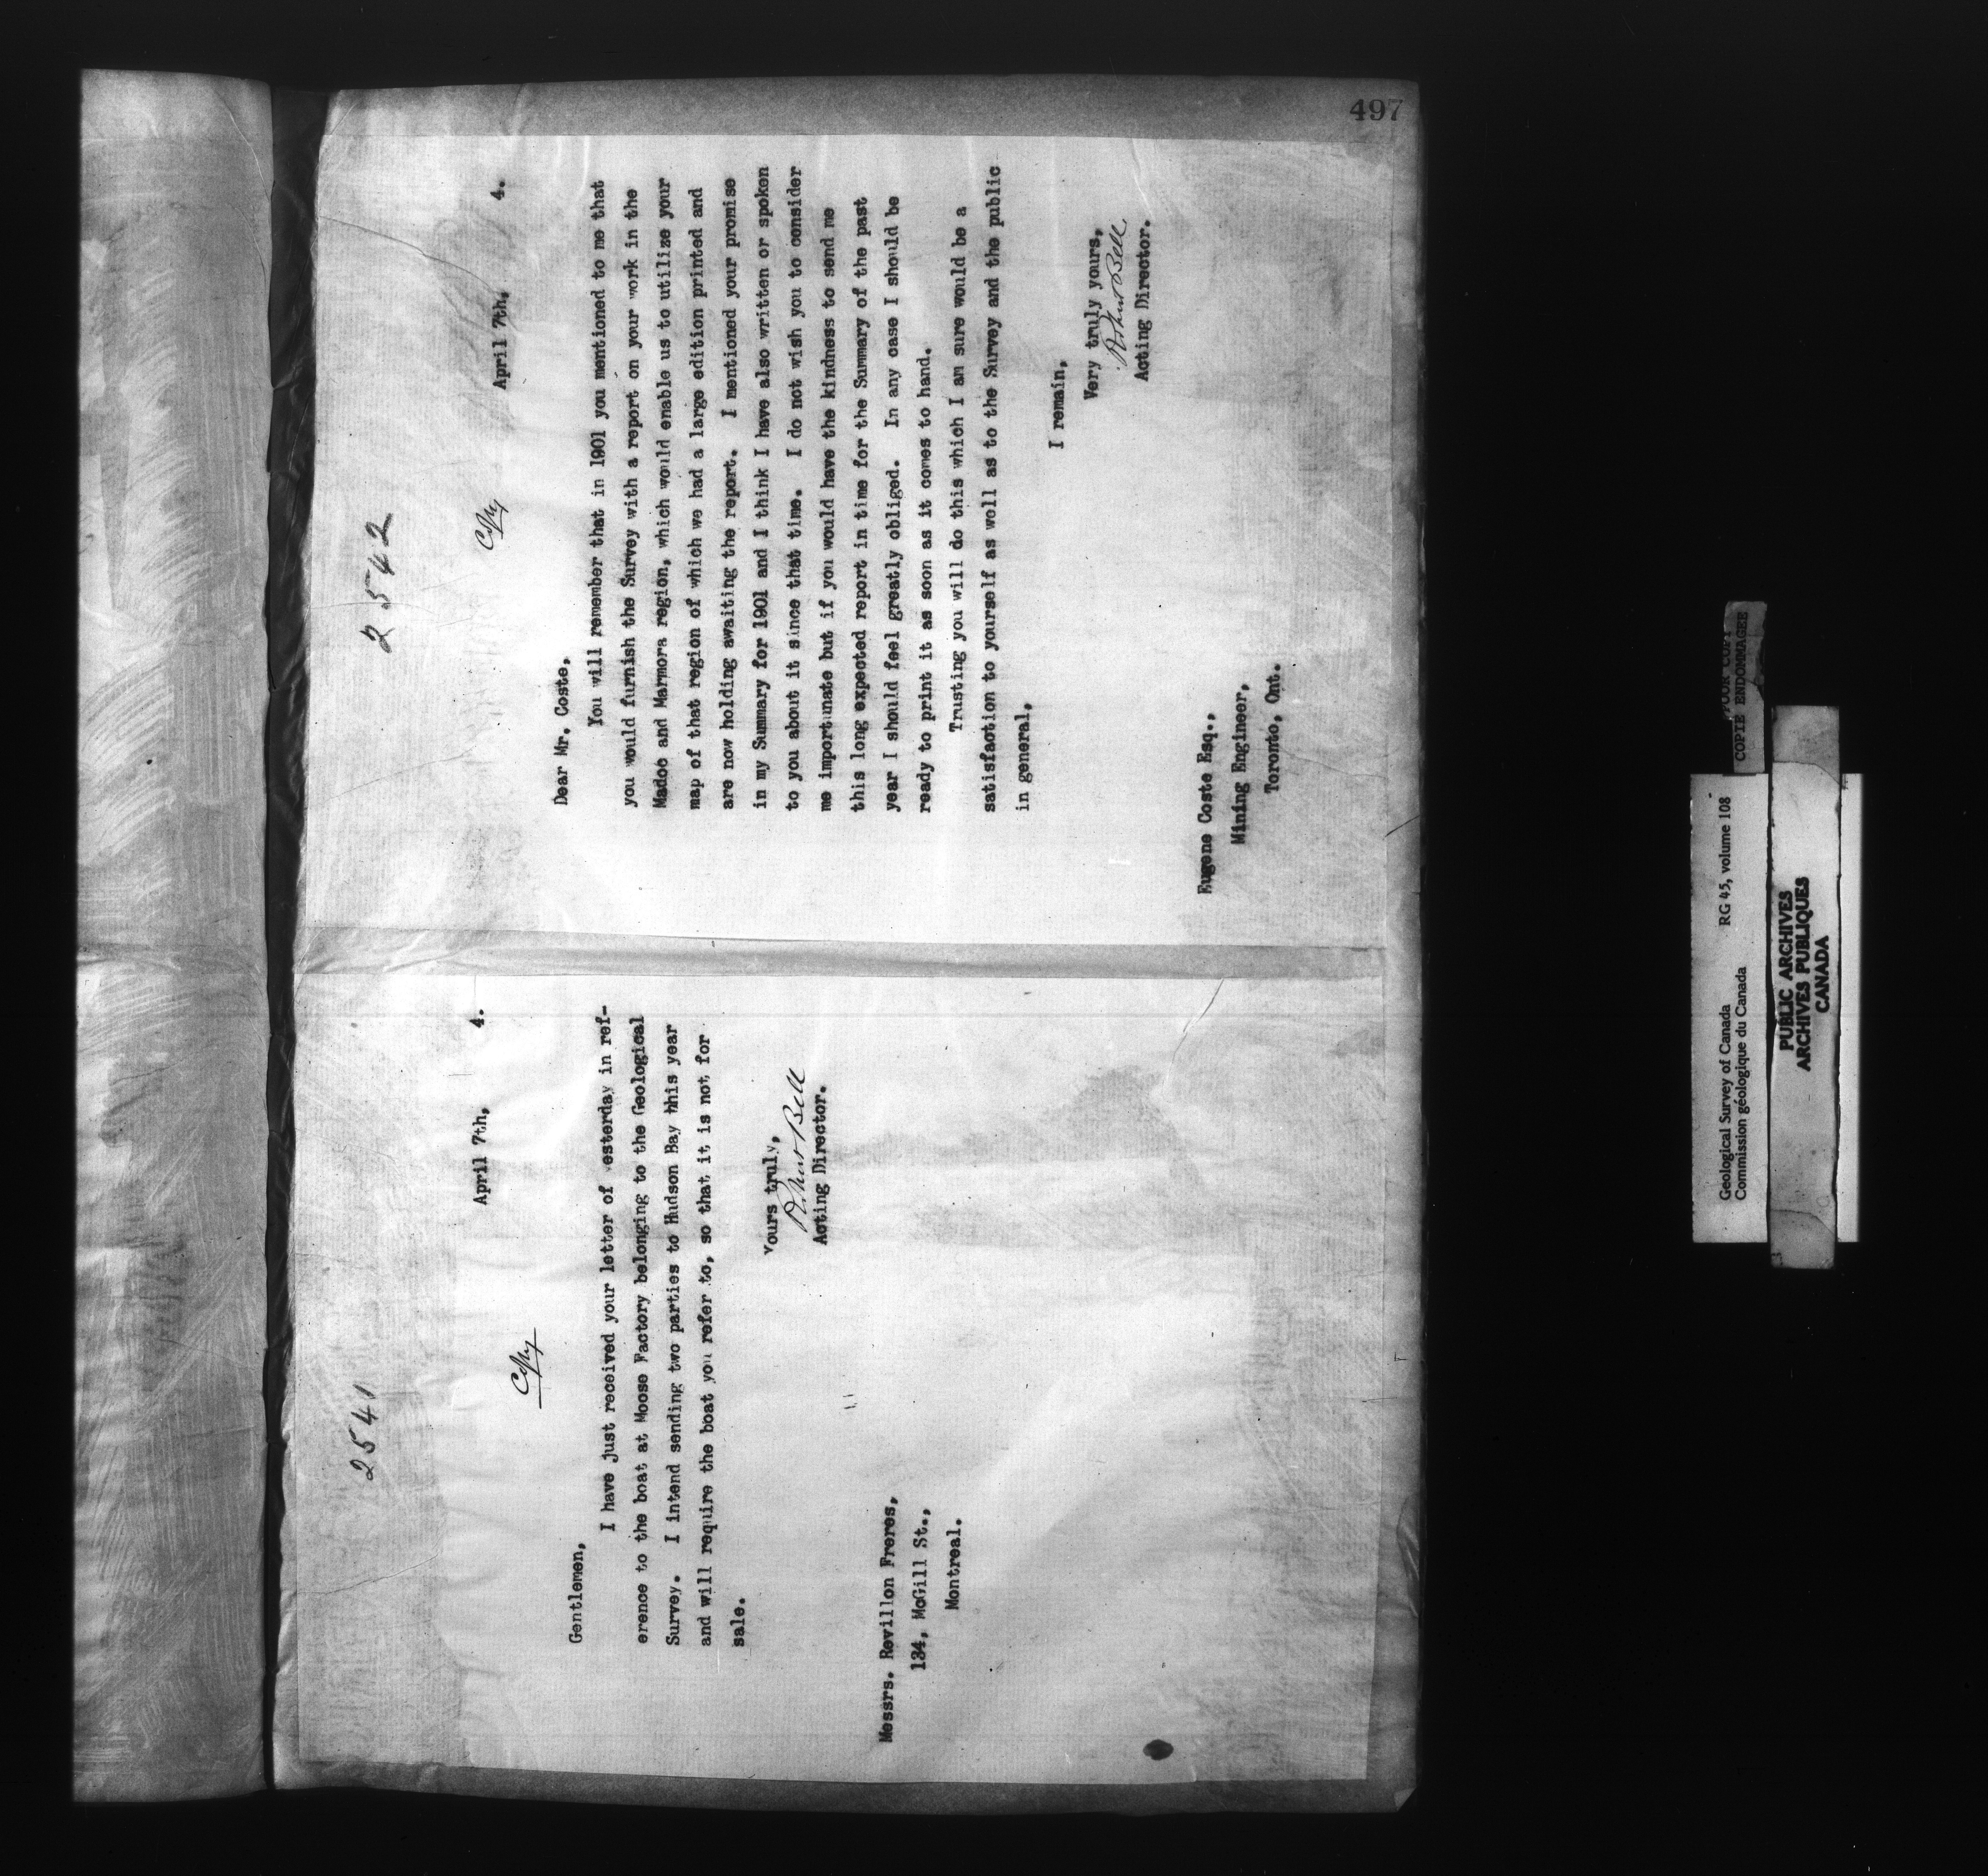 497
2541
April 7th, 4.
Copy
Gentlemen,
I have just received your letter of yesterday in ref-
erence to the boat at Moose Factory belonging to the Geological
Survey. I intend sending two parties to Hudson Bay this year
and will require the boat you refer to, so that it is not for
sale.
Yours truly,
Robert Bell
Acting Director.
Messrs. Revillon Freres,
134, McGill St.,
Montreal.
2542
April 7th, 4.
Copy
Dear Mr. Coste,
You will remember that in 1901 you mentioned to me that
you would furnish the Survey with a report on your work in the
Madoc and Marmora region, which would enable us to utilize your
map of that region of which we had a large edition printed and
are now holding awaiting the report. I mentioned your promise
in my Summary for 1901 and I think I have also written or spoken
to you about it since that time. I do not wish you to consider
me importunate but if you would have the kindness to send me
this long expected report in time for the Summary of the past
year I should feel greatly obliged. In any case I should be
ready to print it as soon as it comes to hand.
Trusting you will do this which I am sure would be a
satisfaction to yourself as well as to the Survey and the public
in general,
I remain,
Very truly yours,
Robert Bell
Acting Director.
Eugene Coste Esq.,
Mining Engineer,
Toronto, Ont.
Geological Survey of Canada RG 45, volume 108
Commission géologique du Canada
POOR COPY
COPIE ENDOMMAGEE
PUBLIC ARCHIVES
ARCHIVES PUBLIQUES
CANADA